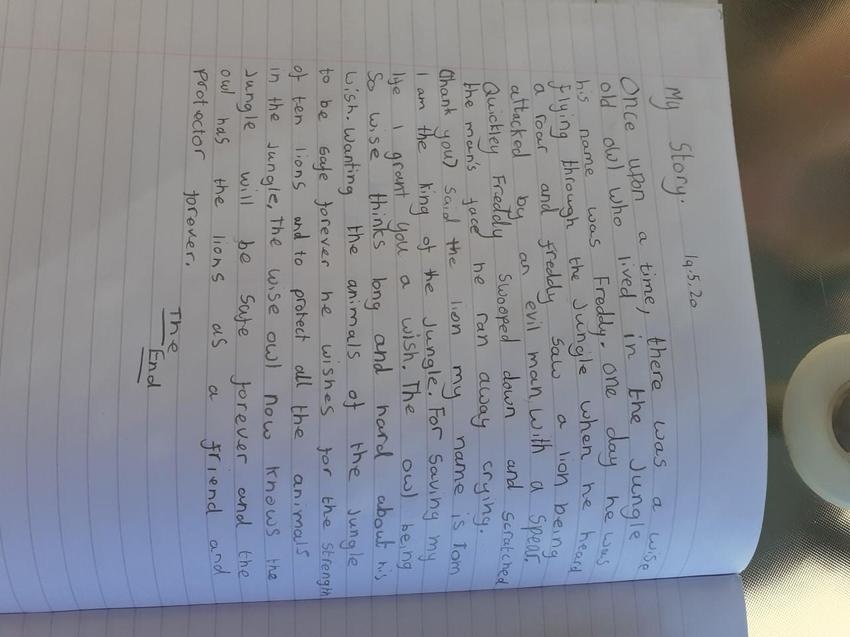 My Story. 19.5.20
Once upon a time, there was a wise
old owl who lived in the Jungle
his name was Freddy. one day he was
flying through the Jungle when he heard
a roar and freddy saw a lion being
attacked by an evil man, with a spear.
Quickley Freddy swooped down and scratched
the man's face he ran away crying.
Thank you) said the lion my name is Tom
I am the king of the Jungle. For saving my
life I grant you a wish. The owl being
So wise thinks long and hard about his
wish. wanting the animals of the Jungle
to be safe forever he wishes for the strength
of ten lions and to protect all the animals
in the Jungle. The wise owl now knows the
Jungle will be safe forever and the
owl has the lions as a friend and
protector forever.
The
End